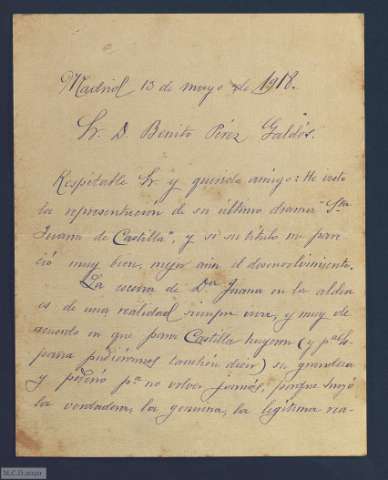 Madrid 13 de mayo de 1918.
Sr. D. Benito Pérez Galdós.
Respetable Sr. y querido amigo: He visto
la representacion de su último drama "Sta
Juana de Castilla", y si su título me pare-
ció muy bien, mejor aún el desenvolvimiento.
La escena de Dª Juana en la aldea
es de una realidad siempre viva, y muy de
acuerdo en que para Castilla huyeron (y pª Es-
paña pudiéramos tambien decir) su grandeza
y poderío pª no volver jamás, porque huyó
la verdadera, la genuina, la legítima rea-